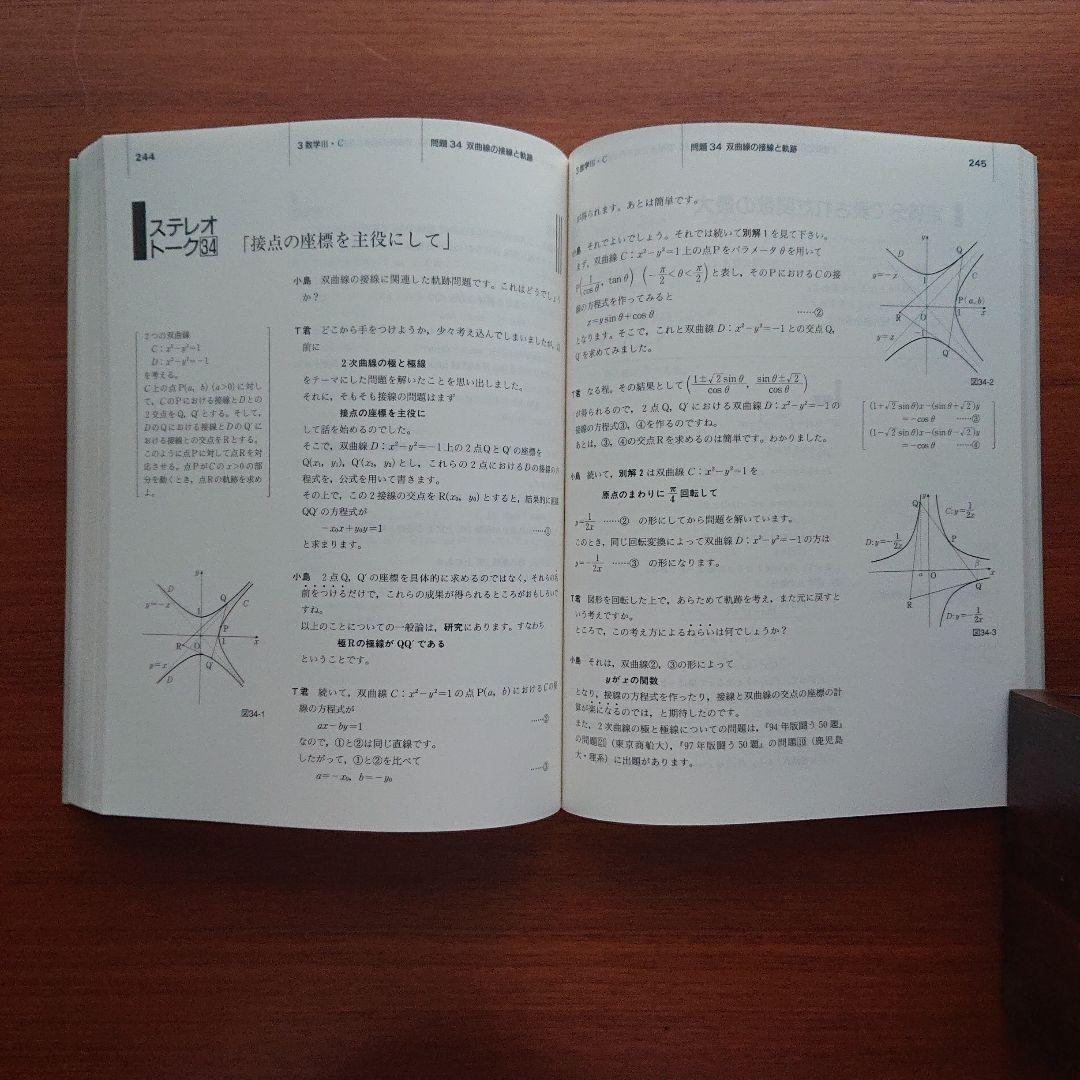 244
3 数学III・C
問題 34 双曲線の接線と軌跡
ステレオ
トーク34
「接点の座標を主役にして」
小島 双曲線の接線に関連した軌跡問題です。これはどうでしょう
か?
T君 どこから手をつけようか,少々考え込んでしまいましたが,
前に
2次曲線の極と極線
をテーマにした問題を解いたことを思い出しました。
それに,そもそも接線の問題はまず
接点の座標を主役に
して話を始めるのでした。
そこで,双曲線 D:x²−y²=−1 上の2点QとQ′の座標を
Q(x₁, y₁), Q′(x₂, y₂) とし,これらの2点におけるDの接線の方
程式を,公式を用いて書きます。
その上で,この2接線の交点を R(x₀, y₀) とすると,結果的に直線
QQ′の方程式が
−x₀x+y₀y=1 ……①
と求まります。
小島 2点Q, Q′の座標を具体的に求めるのではなく,それらの名
前をつけるだけで,これらの成果が得られるところがおもしろいで
すね。
以上のことについての一般論は,研究にあります。すなわち
極Rの極線が QQ′ である
ということです。
T君 続いて,双曲線 C:x²−y²=1 の点 P(a, b) におけるCの接
線の方程式が
ax−by=1 ……②
なので,①と②は同じ直線です。
したがって,①と②を比べて
a=−x₀, b=−y₀ ……③
2つの双曲線
C:x²−y²=1
D:x²−y²=−1
を考える。
C上の点P(a, b) (a>0) に対し
て,CのPにおける接線とDとの
2交点をQ, Q′とする。そして,
DのQにおける接線とDのQ′に
おける接線との交点をRとする。
このように点Pに対して点Rを対
応させる。点PがCのx>0の部
分を動くとき,点Rの軌跡を求め
よ。
y
D
Q
C
y=−x
1
P
R
O
1
x
Q′
y=x
D
図34-1
3 数学III・C
問題 34 双曲線の接線と軌跡
245
が得られます。あとは簡単です。
小島 それでよいでしょう。それでは続いて別解1を見て下さい。
まず,双曲線 C:x²−y²=1 上の点Pをパラメータ θ を用いて
P(1/cosθ, tanθ) (−π/2<θ<π/2) と表し,そのPにおけるCの接
線の方程式を作ってみると
x=y sinθ+cosθ ……②
となります。そこで,これと双曲線 D:x²−y²=−1 との交点Q,
Q′を求めてみました。
T君 なる程。その結果として ((1±√2 sinθ)/cosθ, (sinθ±√2)/cosθ)
が得られるので,2点Q, Q′における双曲線 D:x²−y²=−1 の
接線の方程式③,④を作るのですね。
あとは,③,④の交点Rを求めるのは簡単です。わかりました。
小島 続いて,別解2は双曲線 C:x²−y²=1 を
原点のまわりに π/4 回転して
y=1/2x ……② の形にしてから問題を解いています。
このとき,同じ回転変換によって双曲線 D:x²−y²=−1 の方は
y=−1/2x ……③ の形になります。
T君 図形を回転した上で,あらためて軌跡を考え,また元に戻すと
いう考えですか。
ところで,この考え方によるねらいは何でしょうか?
小島 それは,双曲線②,③の形によって
yがxの関数
となり,接線の方程式を作ったり,接線と双曲線の交点の座標の計
算が楽になるのでは,と期待したのです。
また,2次曲線の極と極線についての問題は,『94年版闘う50題』
の問題21(東京商船大),『97年版闘う50題』の問題10(鹿児島
大・理系)に出題があります。
y
D
Q
C
y=−x
1
P(a, b)
R
O
1
x
Q′
y=x
D
図34-2
(1+√2 sinθ)x−(sinθ+√2)y
=−cosθ ……③
(1−√2 sinθ)x−(sinθ−√2)y
=−cosθ ……④
y
Q
C:y=1/2x
D:y=−1/2x
P
β
α
O
x
Q′
R
D:y=−1/2x
図34-3